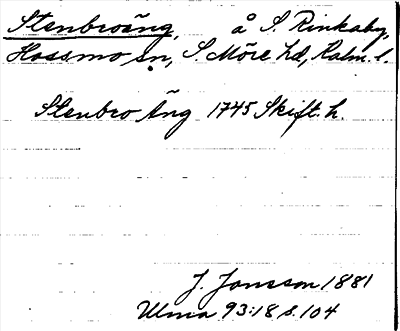 Stenbroäng, å S. Rinkaby,
Hossmo sn, S. Möre hd, Kalm. l.
Stenbro Äng 1745 Skift. h.
J. Jonsson 1881
Ulma 93:18 s. 104